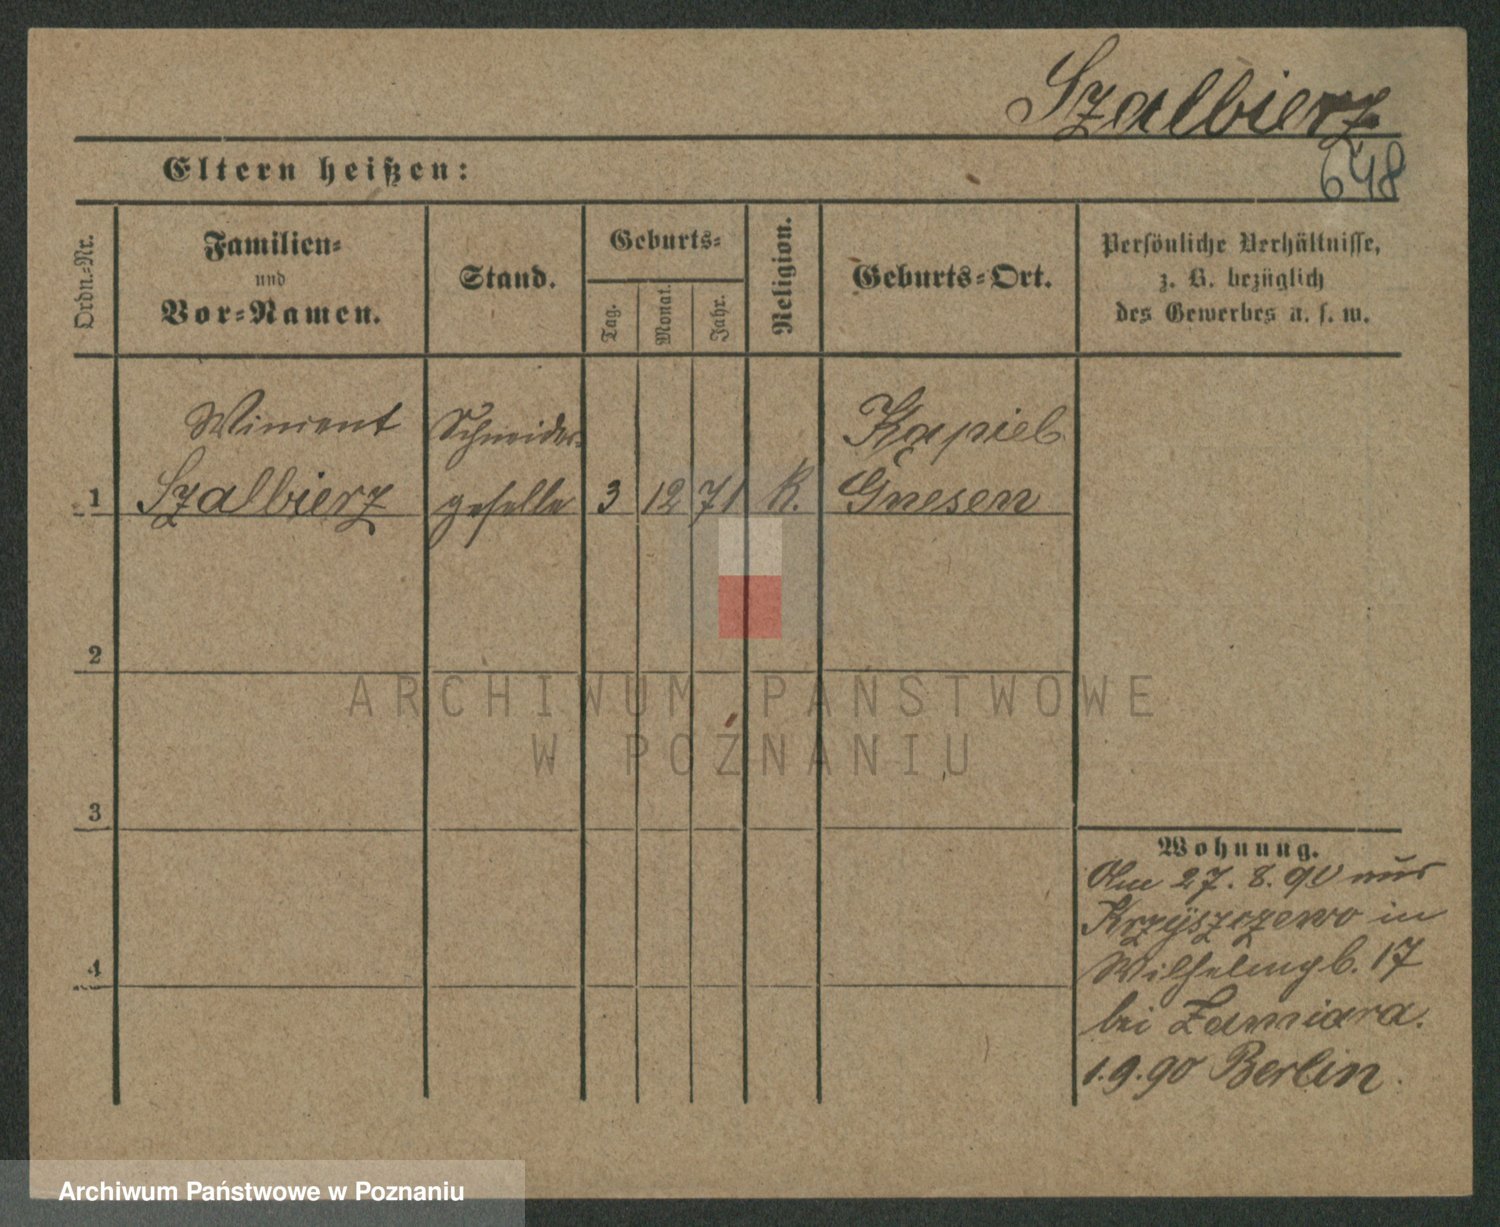 Szalbierz
648
Eltern heißen:
Ordn.-Nr.
Familien-
und
Vor-Namen.
Stand.
Geburts-
Tag.
Monat.
Jahr.
Religion.
Geburts-Ort.
Persönliche Verhältnisse,
z. B. bezüglich
des Gewerbes u. s. w.
Wincent Schneider- Kapiel
1 Szalbierz geselle 3 12 71 K. Gnesen
2
ARCHIWUM PAŃSTWOWE
W POZNANIU
3
Wohnung.
Am 27. 8. 90 aus
Krzyszczewo in
Wilhelmyb. 17
4
bei Zamiara.
1.9.90 Berlin.
Archiwum Państwowe w Poznaniu